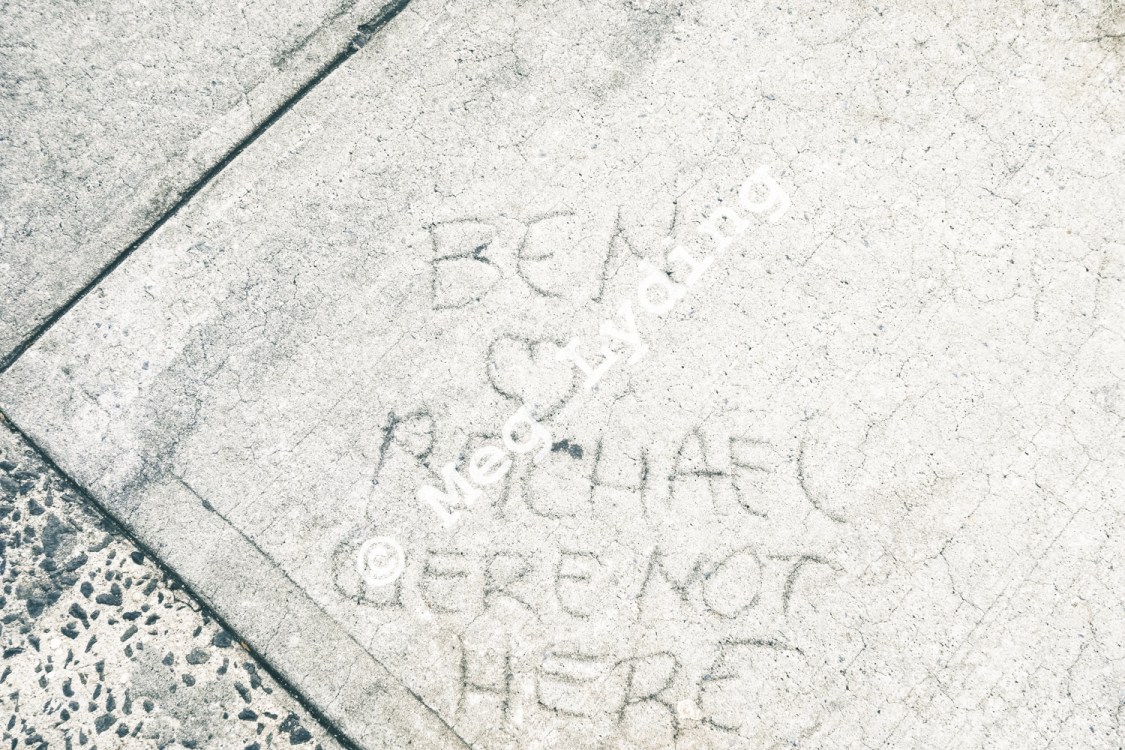 BEN
♡
RACHAEL
WERE NOT
HERE
© Meg Lyding